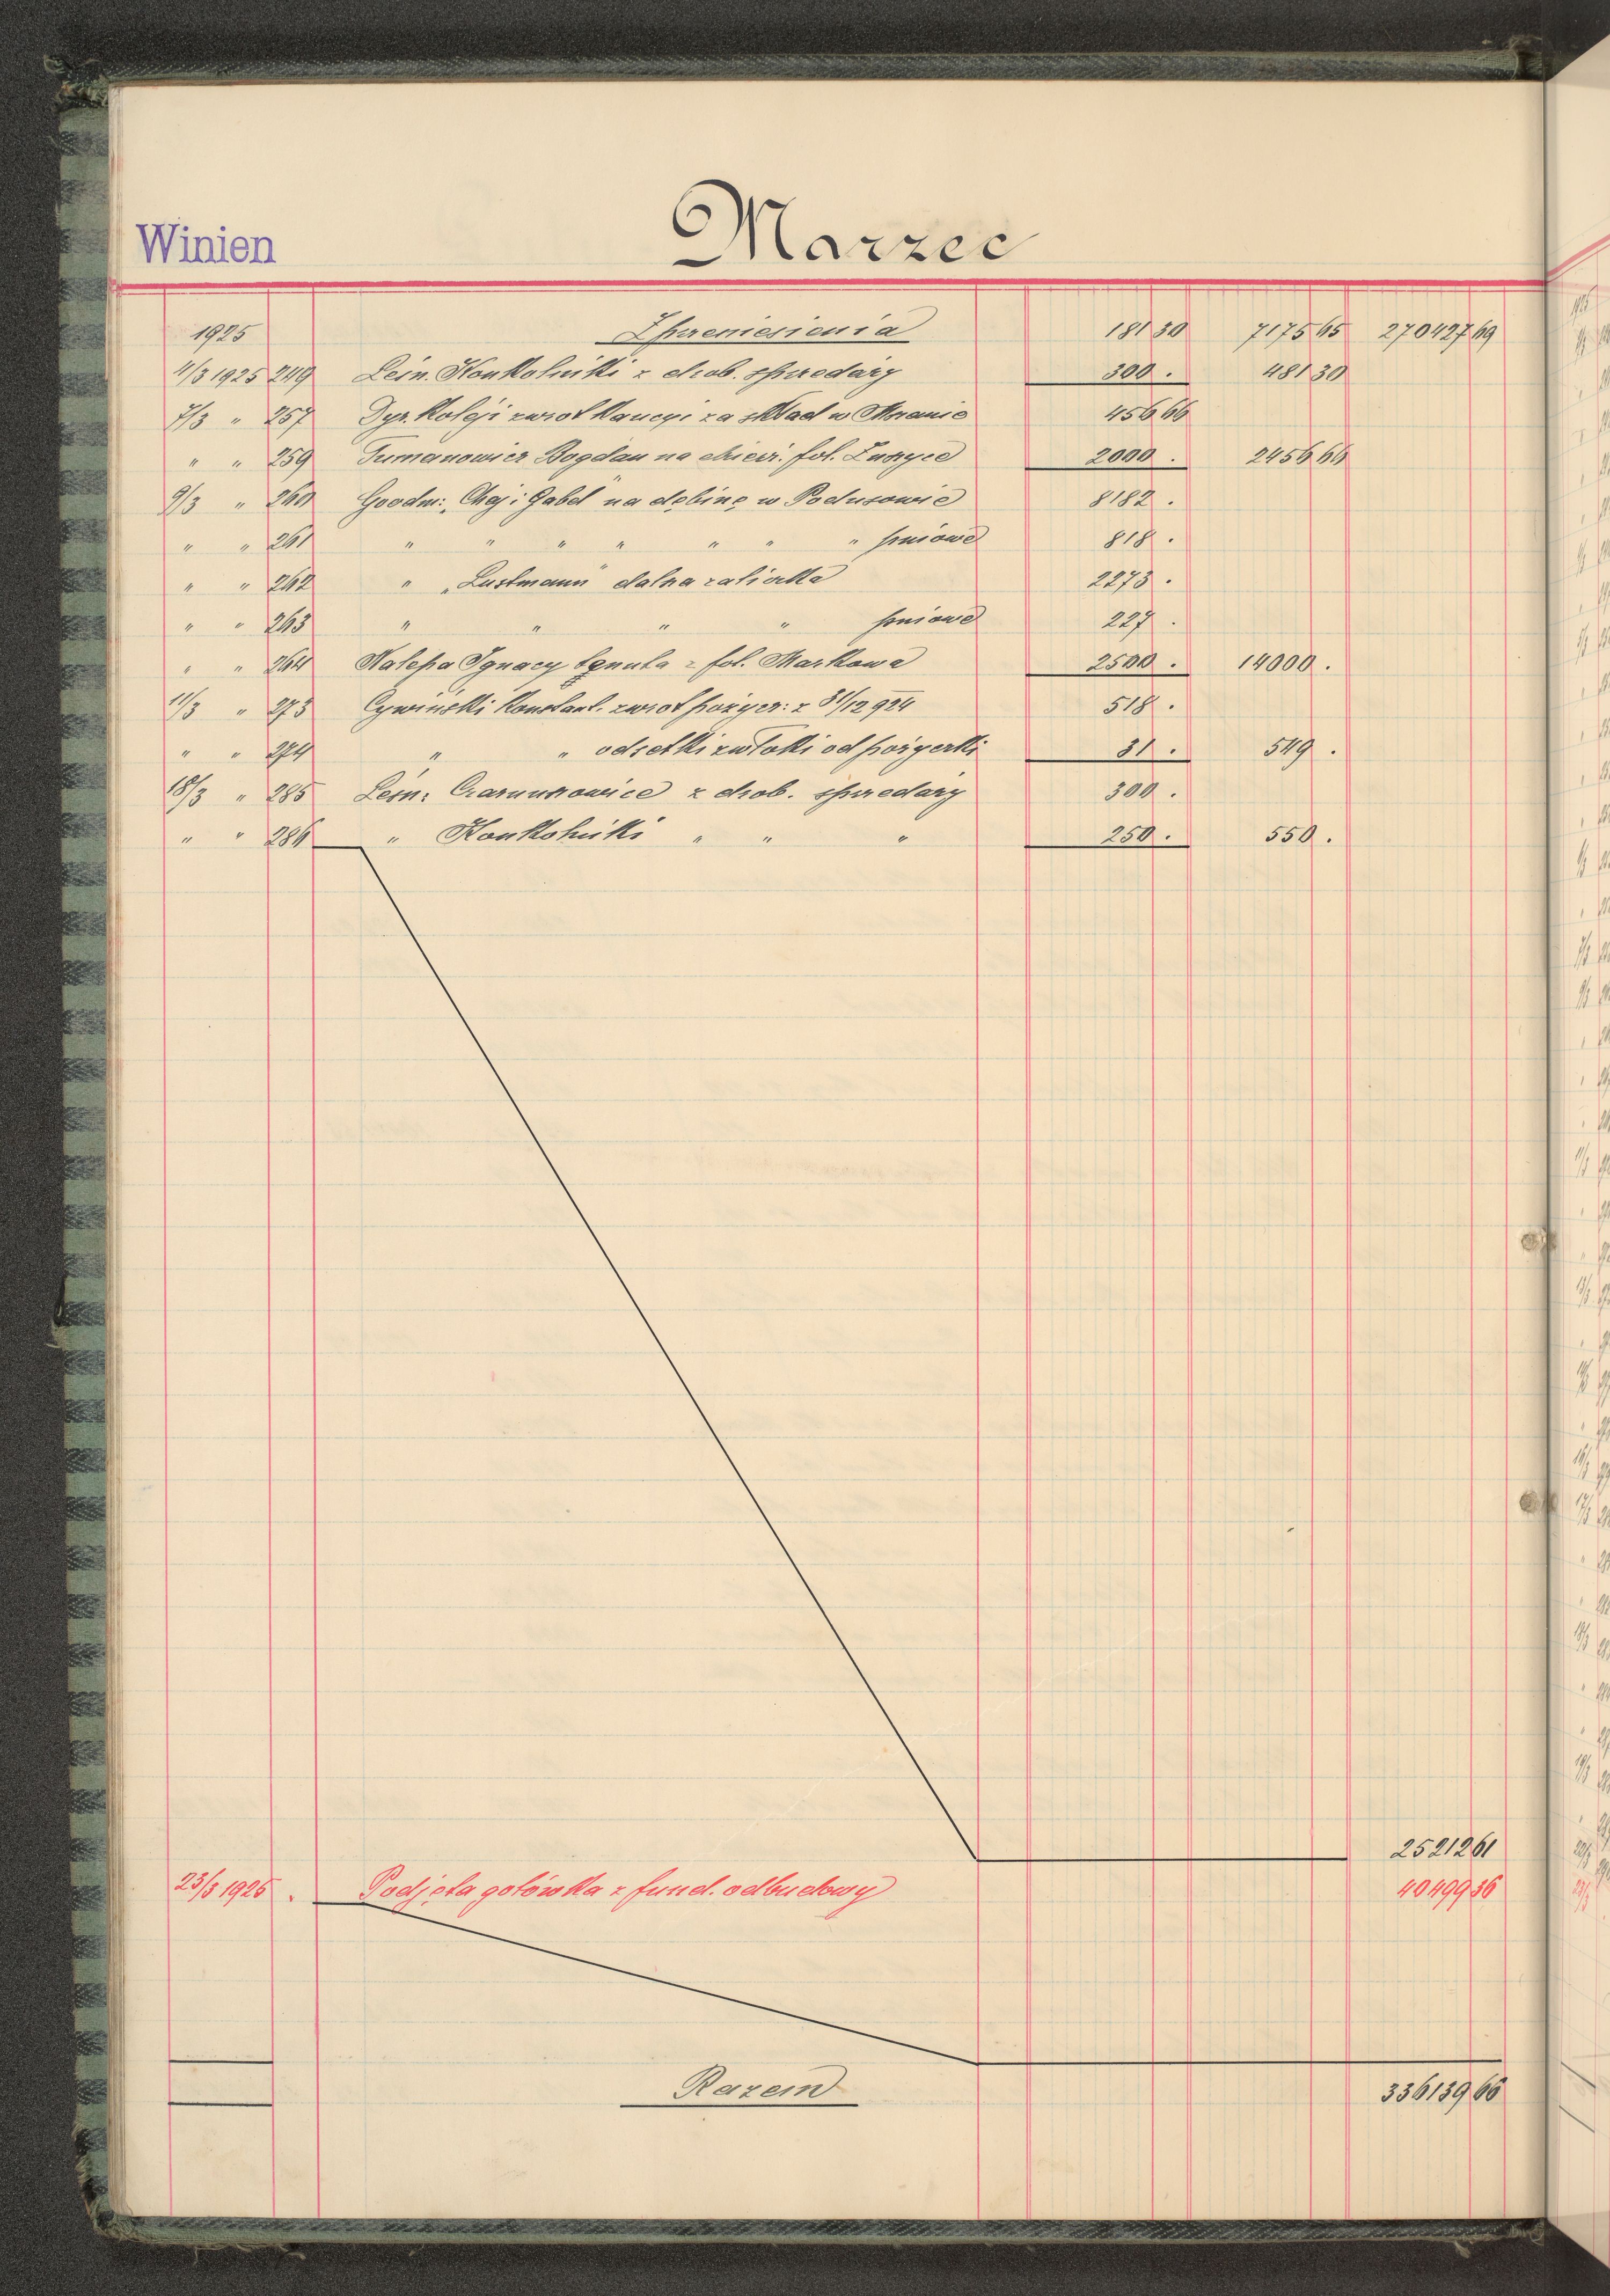 Winien
Marzec
1925 Z przeniesienia 181 30 7175 65 270427 69
4/3 1925 249 Leśn. Konkolniki z drob. sprzedaży 300 . 481 30
7/3 " 257 Dyr. Kolej: zwrot kaucyi za skład w 456 66
" " 259 Tumanowicz Bogdan na dzierż. fol. 2000 . 2456 66
9/3 " 260 Goodm: "Chaj i Gabel" na dębinę w Podusowie 8182 .
" " 261 " " " " " " " pniowe 818 .
" " 262 " "Lustmann" dalsza zaliczka 2273 .
" " 263 " " " " pniowe 227 .
" " 264 Nalepa Ignacy tenuta z fol. Markowa 2500 . 14000 .
11/3 " 273 Cywiński Konstant. zwrot pożycz: z 31/12 924 518 .
" " 274 " " odsetki zwłoki od pożyczki 31 . 549 .
18/3 " 285 Leśn: z drob. sprzedaży 300 .
" " 286 " Konkolniki " " " 250 . 550 .
25212 61
23/3 1925 . Podjęta gotówka z fund. odbudowy 40499 36
Razem 336139 66